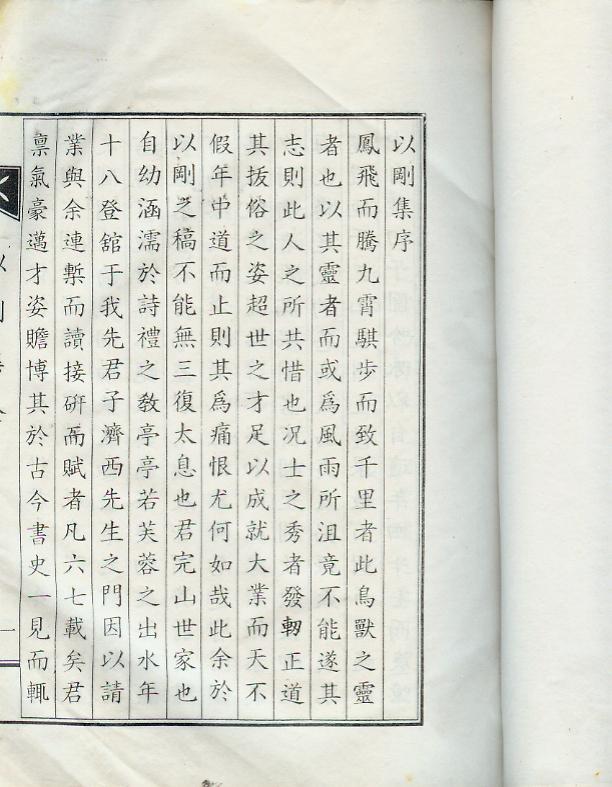 以剛集序
鳳飛而騰九霄騏步而致千里者此鳥獸之靈
者也以其靈者而或爲風雨所沮竟不能遂其
志則此人之所共惜也况士之秀者發軔正道
其拔俗之姿超世之才足以成就大業而天不
假年中道而止則其爲痛恨尤何如哉此余於
以剛之稿不能無三復太息也君完山世家也
自幼涵濡於詩禮之教亭亭若芙蓉之出水年
十八登舘于我先君子濟西先生之門因以請
業與余連槧而讀接硏而賦者凡六七載矣君
禀氣豪邁才姿贍博其於古今書史一見而輒